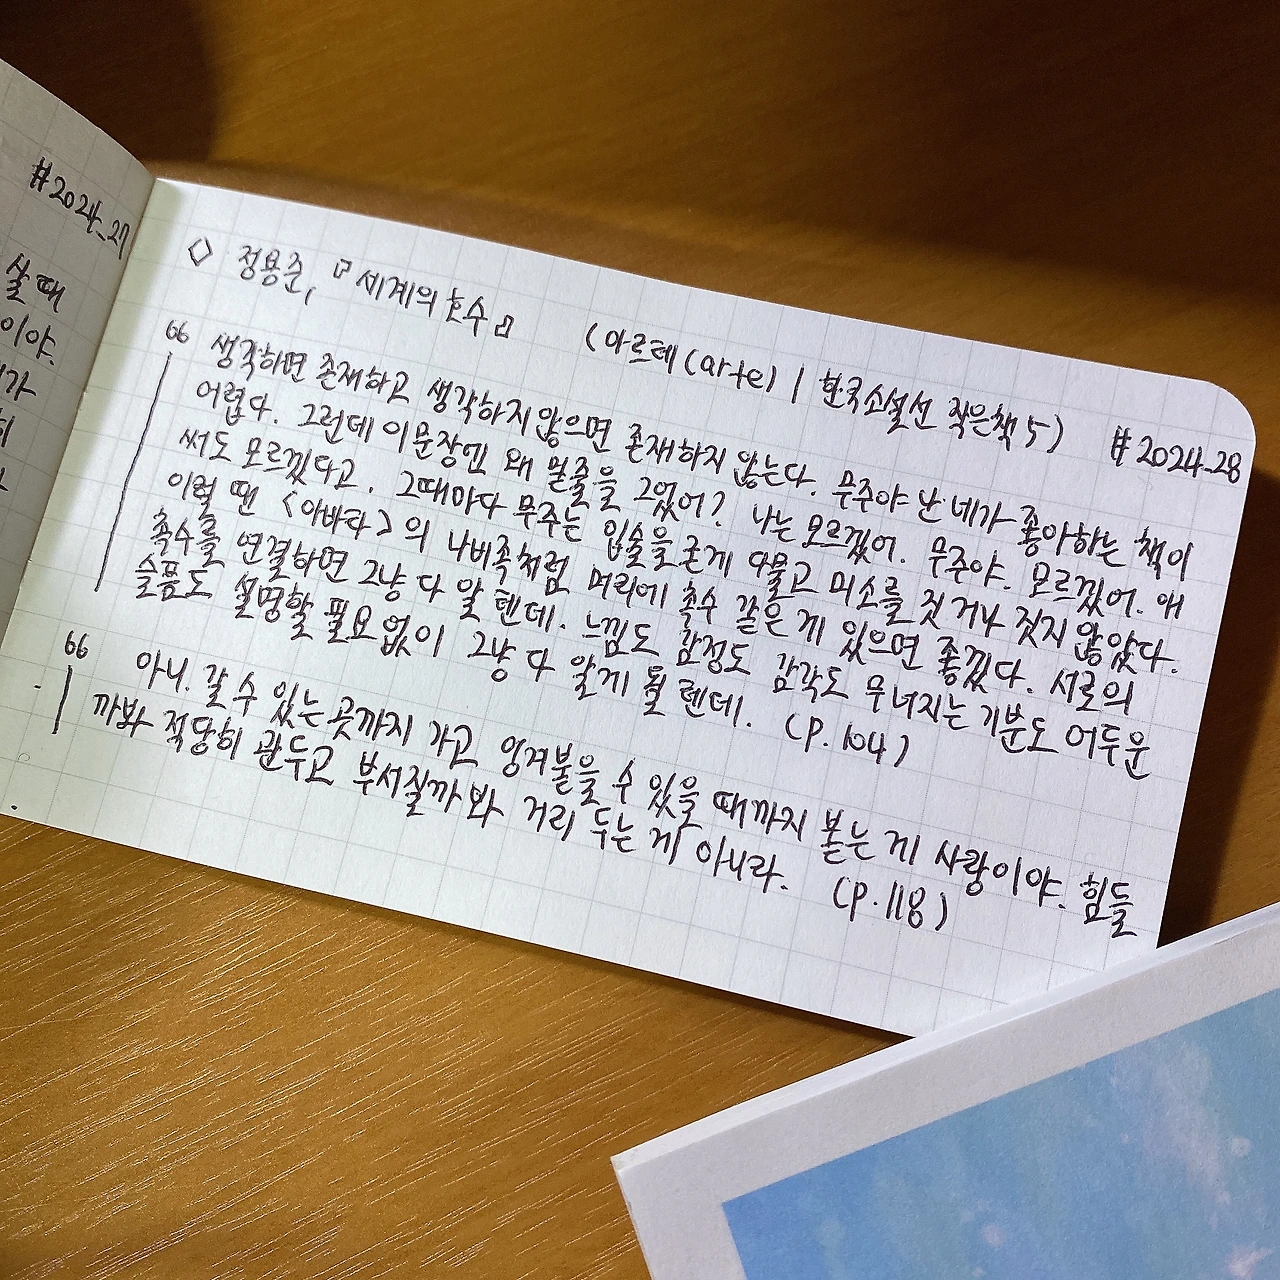 #2024_27
살 때
이야.
가
◇ 정용준, 『세계의 호수』 (아르테(arte) | 한국소설선 작은책 5) #2024_28
“ 생각하면 존재하고 생각하지 않으면 존재하지 않는다. 무주야 난 네가 좋아하는 책이
어렵다. 그런데 이 문장엔 왜 밑줄을 그었어? 나는 모르겠어. 무주야. 모르겠어. 애
써도 모르겠다고. 그때마다 무주는 입술을 굳게 다물고 미소를 짓거나 짓지 않았다.
이럴 땐 <아바타>의 나비족처럼 머리에 촉수 같은 게 있으면 좋겠다. 서로의
촉수를 연결하면 그냥 다 알 텐데. 느낌도 감정도 감각도 무너지는 기분도 어두운
슬픔도 설명할 필요 없이 그냥 다 알게 될 텐데. (p.104)
“ 아니. 갈 수 있는 곳까지 가고 엉겨붙을 수 있을 때까지 붙는 게 사랑이야. 힘들
까봐 적당히 관두고 부서질까 봐 거리 두는 게 아니라. (p.118)